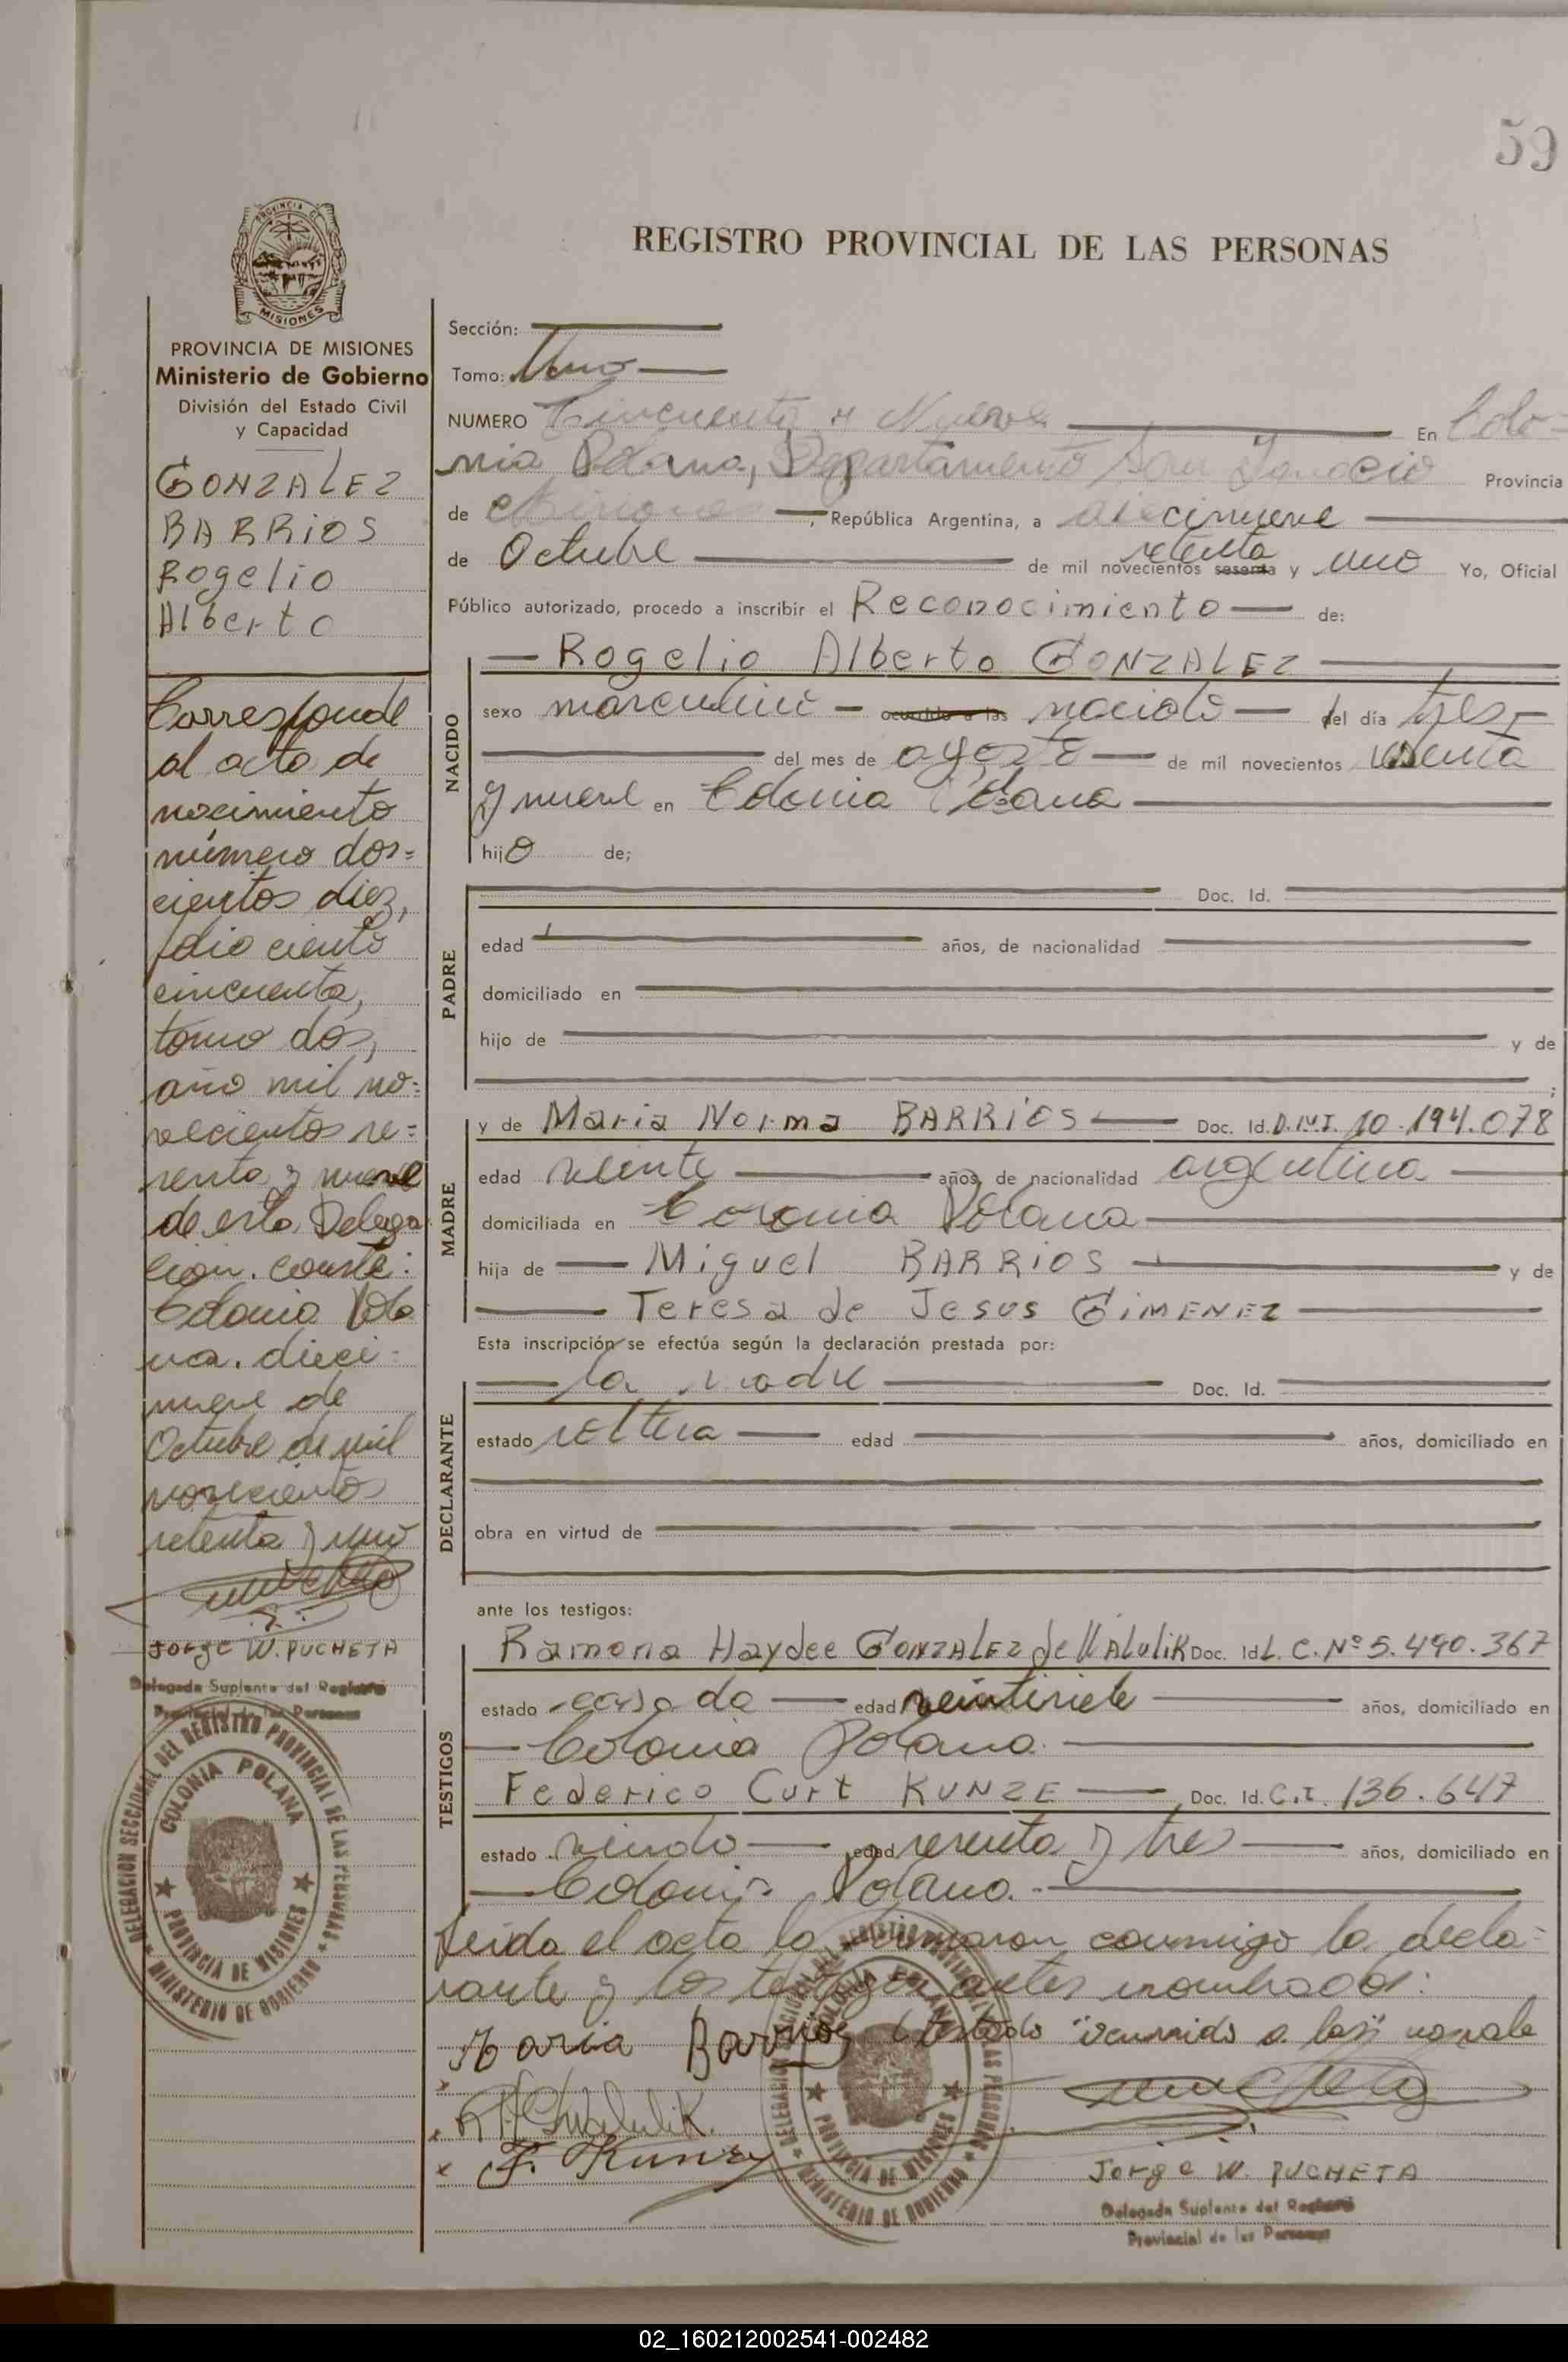 59
PROVINCIA DE
MISIONES
REGISTRO PROVINCIAL DE LAS PERSONAS
PROVINCIA DE MISIONES
Ministerio de Gobierno
División del Estado Civil
y Capacidad
GONZALEZ
BARRIOS
Rogelio
Alberto
Corresponde
al acta de
nacimiento
número dos=
cientos diez,
folio ciento
cincuenta,
tomo dos,
año mil no=
vecientos se=
senta y nueve
de esta Delega
ción. conste:
Colonia Pola
na. dieci=
nueve de
Octubre de mil
novecientos
setenta y uno
Jorge W. PUCHETA
Delegado Suplente del Registro
Provincial de las Personas
DELEGACION SECCIONAL DEL REGISTRO PROVINCIAL DE LAS PERSONAS
MINISTERIO DE GOBIERNO
COLONIA POLANA
PROVINCIA DE MISIONES
Sección:
Tomo: Uno
NUMERO Cincuenta y Nueve En Colo=
nia Polana, Departamento San Ignacio Provincia
de Misiones, República Argentina, a diecinueve
de Octubre de mil novecientos sesenta setenta y uno Yo, Oficial
Público autorizado, procedo a inscribir el Reconocimiento de:
NACIDO
Rogelio Alberto GONZALEZ
sexo masculino ocurrido a las nacido del día tres
del mes de agosto de mil novecientos sesenta
y nueve en Colonia Polana
hijo de;
PADRE
Doc. Id.
edad años, de nacionalidad
domiciliado en
hijo de y de
;
MADRE
y de Maria Norma BARRIOS Doc. Id. D.N.I. 10.194.078
edad veinte años, de nacionalidad argentina
domiciliada en Colonia Polana
hija de Miguel BARRIOS y de
Teresa de Jesus GIMENEZ
Esta inscripción se efectúa según la declaración prestada por:
DECLARANTE
la madre Doc. Id.
estado soltera edad años, domiciliado en
obra en virtud de
ante los testigos:
TESTIGOS
Ramona Haydee GONZALEZ de WALULIK Doc. Id L.C. Nº 5.490.367
estado casada edad veintisiete años, domiciliado en
Colonia Polana
Federico Curt KUNZE Doc. Id. C.I. 136.647
estado viudo edad sesenta y tres años, domiciliado en
Colonia Polana.
Leida el acta la firmaron conmigo la decla=
rante y los testigos antes nombrados:
Maria Barrios testado "ocurrido a las" no vale
F. Kunze
DELEGACION SECCIONAL DEL REGISTRO PROVINCIAL DE LAS PERSONAS
MINISTERIO DE GOBIERNO
COLONIA POLANA
PROVINCIA DE MISIONES
Jorge W. PUCHETA
Delegado Suplente del Registro
Provincial de las Personas
02_160212002541-002482